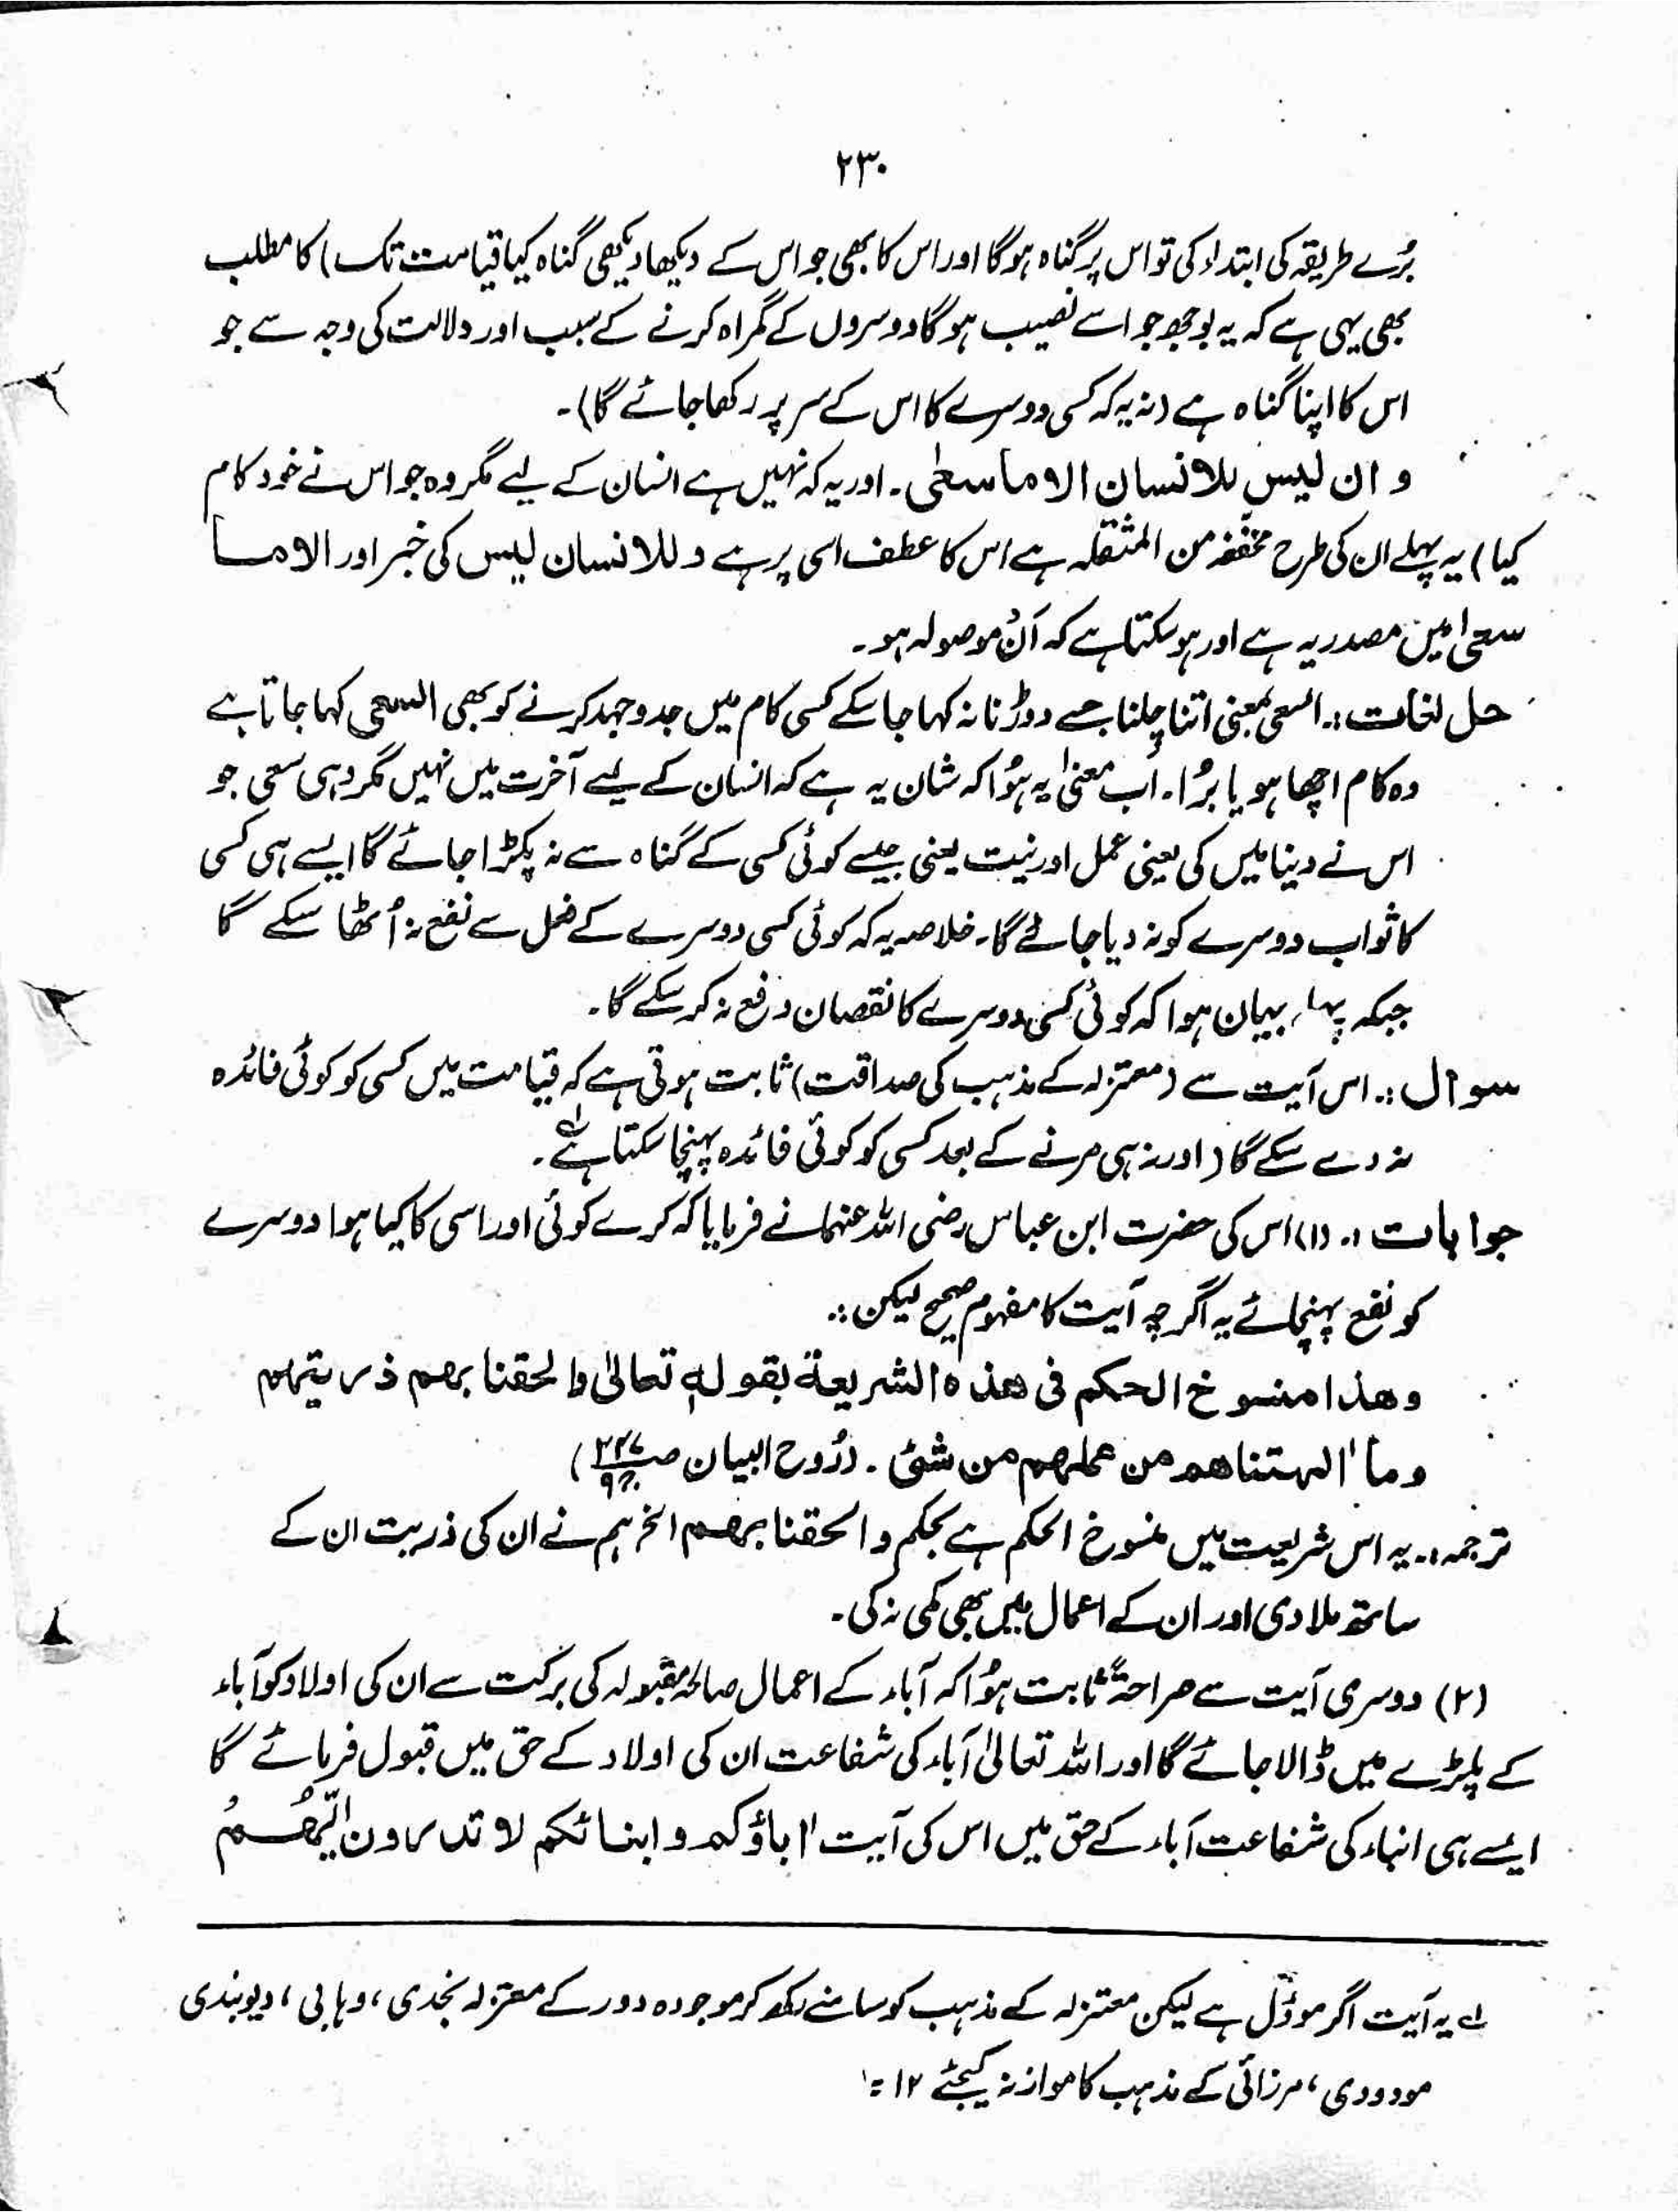 ۲۳۰
بُرے طریقہ کی ابتداء کی تو اس پر گناہ ہوگا اور اس کا بھی جو اس کے دیکھا دیکھی گناہ کیا قیامت تک) کا مطلب
بھی یہی ہے کہ یہ بوجھ جو اسے نصیب ہوگا دوسروں کے گمراہ کرنے کے سبب اور دلالت کی وجہ سے جو
اس کا اپنا گناہ ہے (نہ یہ کہ کسی دوسرے کا اس کے سر پر رکھا جائے گا)۔
و ان لیس للانسان الا ما سعٰی۔ اور یہ کہ نہیں ہے انسان کے لیے مگر وہ جو اس نے خود کام
کیا) یہ پہلے ان کی طرح مخففہ من المثقلہ ہے اس کا عطف اسی پر ہے و للانسان لیس کی خبر اور الا ما
سعیٰ میں مصدریہ ہے اور ہو سکتا ہے کہ اَنْ موصولہ ہو۔
حل لغات :۔ السعی بمعنی اتنا چلنا جسے دوڑنا نہ کہا جا سکے کسی کام میں جدوجہد کرنے کو بھی السعی کہا جاتا ہے
وہ کام اچھا ہو یا بُرا۔ اَب معنیٰ یہ ہُوا کہ شان یہ ہے کہ انسان کے لیے آخرت میں نہیں مگر وہی سعی جو
اس نے دینا میں کی یعنی عمل اور نیت یعنی جیسے کوئی کسی کے گناہ سے نہ پکڑا جائے گا ایسے ہی کسی
کا ثواب دوسرے کو نہ دیا جائے گا۔ خلاصہ یہ کہ کوئی کسی دوسرے کے فعل سے نفع نہ اُٹھا سکے گا
جبکہ پہلے بیان ہوا کہ کوئی کسی دوسرے کا نقصان دفع نہ کر سکے گا۔
سوال :۔ اس آیت سے (معتزلہ کے مذہب کی صداقت) ثابت ہوتی ہے کہ قیامت میں کسی کو کوئی فائدہ
نہ دے سکے گا (اور نہ ہی مرنے کے بعد کسی کو کوئی فائدہ پہنچا سکتا ہے۔
جوابات :۔ (۱) اس کی حضرت ابن عباس رضی اللہ عنہما نے فرمایا کہ کرے کوئی اور اسی کا کیا ہوا دوسرے
کو نفع پہنچائے یہ اگرچہ آیت کا مفہوم صحیح لیکن :۔
وھذا منسوخ الحکم فی ھذہ الشریعۃ بقولہ تعالیٰ والحقنا بھم ذریتھم
وما التناھم من عملھم من شئ۔ (رُوح البیان صـ۲۴۷ ج۹)
ترجمہ :۔ یہ اس شریعت میں منسوخ الحکم ہے بحکم و الحقنا بھم الخ ہم نے ان کی ذریت ان کے
ساتھ ملا دی اور ان کے اعمال میں بھی کمی نہ کی۔
(۲) دوسری آیت سے صراحۃً ثابت ہُوا کہ آباء کے اعمال صالحہ مقبولہ کی برکت سے ان کی اولاد کو آباء
کے پلڑے میں ڈالا جائے گا اور اللہ تعالیٰ آباء کی شفاعت ان کی اولاد کے حق میں قبول فرمائے گا
ایسے ہی ابناء کی شفاعت آباء کے حق میں اس کی آیت اٰباؤکم و ابنائکم لا تدرون ایّھم
لے یہ آیت اگر موؤل ہے لیکن معتزلہ کے مذہب کو سامنے رکھ کر موجودہ دور کے معتزلہ نجدی، وہابی، دیوبندی
مودودی، مرزائی کے مذہب کا موازنہ کیجئے ۱۲ =